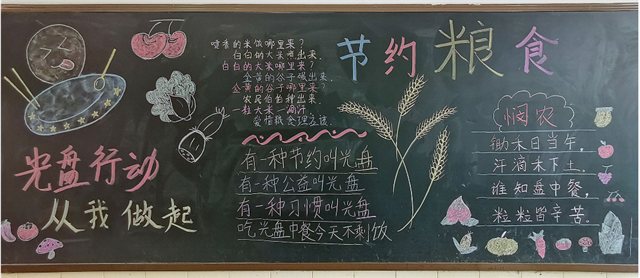 节约粮食
喷香的米饭哪里来?
白白的大米煮出来。
白白的大米哪里来?
金黄的谷子碾出来。
金黄的谷子哪里来?
农民伯伯种出来。
一粒大米一滴汗
爱惜粮食理应该。
光盘行动
从我做起
有一种节约叫光盘
有一种公益叫光盘
有一种习惯叫光盘
吃光盘中餐今天不剩饭
悯农
锄禾日当午,
汗滴禾下土。
谁知盘中餐,
粒粒皆辛苦。